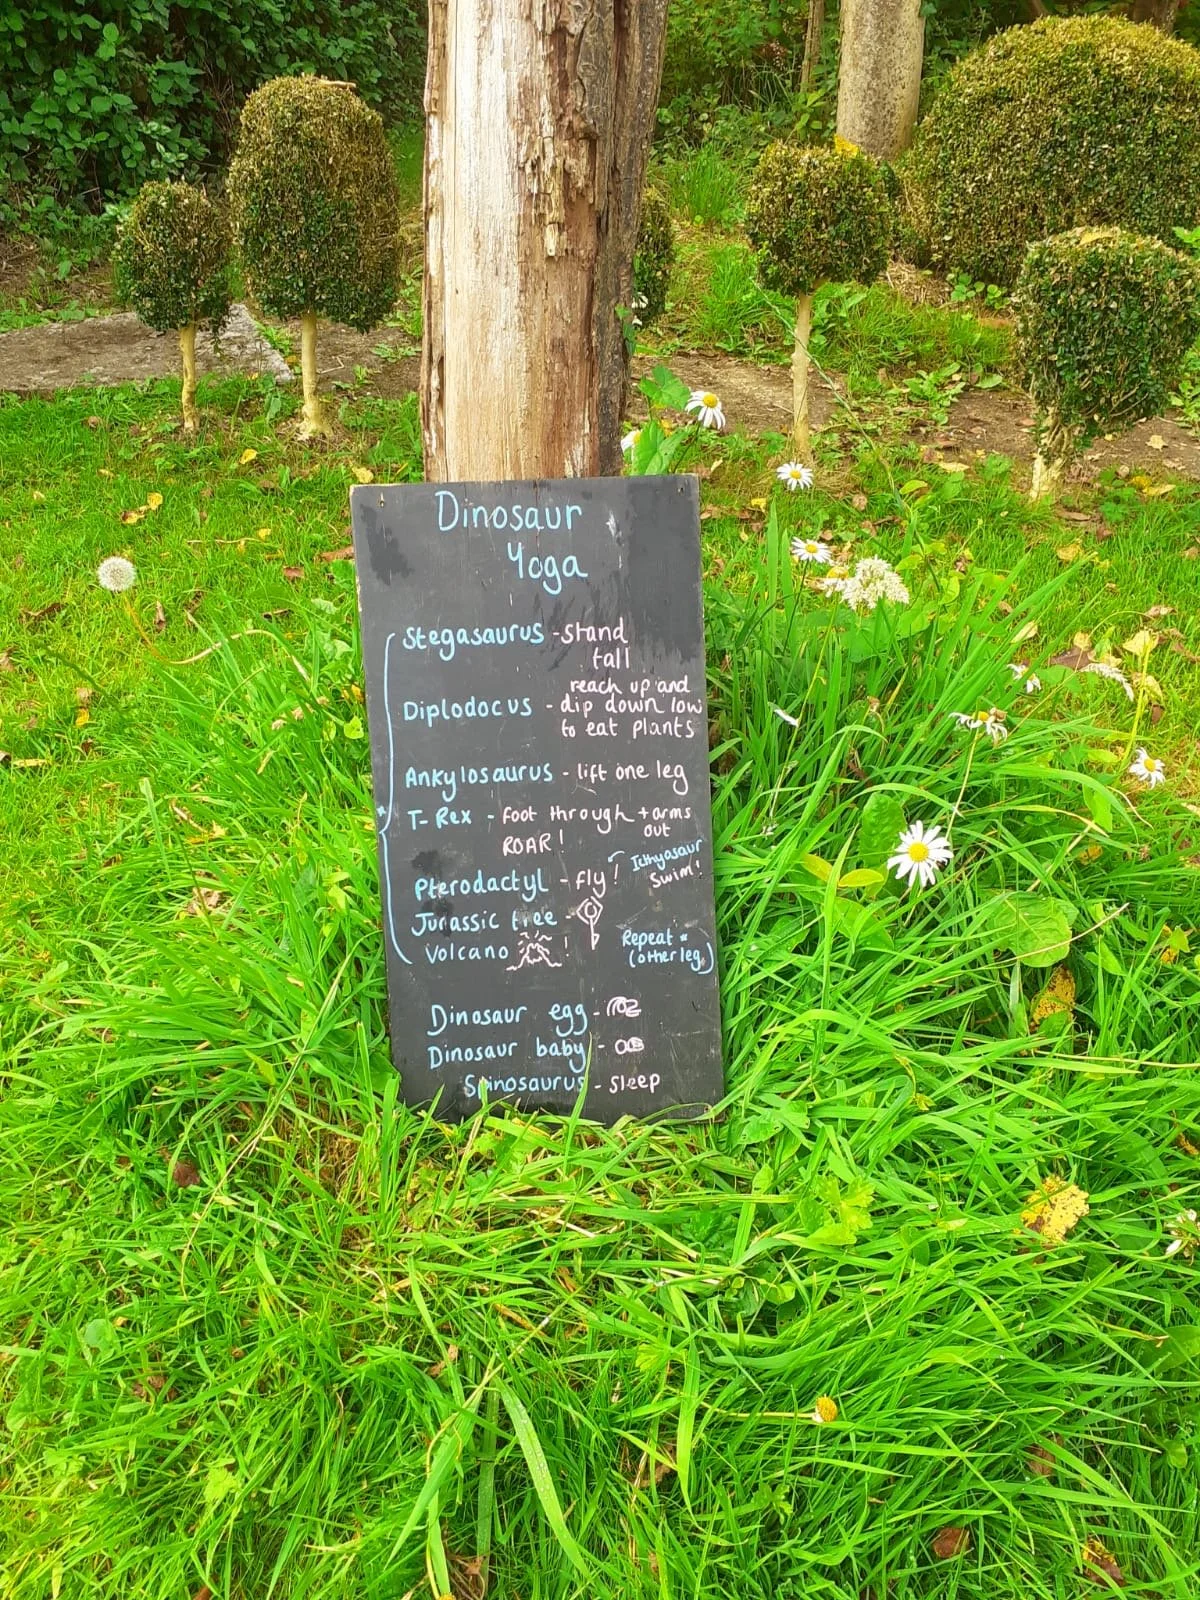 Dinosaur
Yoga
Stegasaurus - stand
tall
reach up and
Diplodocus - dip down low
to eat plants
Ankylosaurus - lift one leg
T-Rex - foot through + arms
out
ROAR!
Icthyosaur
swim!
Pterodactyl - fly!
Jurassic tree -
Volcano !
Repeat *
(other leg)
Dinosaur egg -
Dinosaur baby -
Spinosaurus - sleep